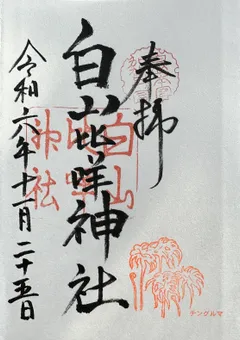 奉拝
白山比咩神社
令和六年十一月二十五日
白山
比咩
神社
チングルマ